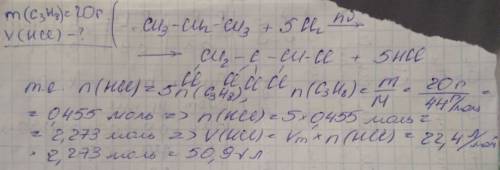 m(C3H8)=20г
V(HCl)-?
CH3-CH2-CH3 + 5Cl2 hν→
→ CH2-C-CH-Cl + 5HCl
Cl Cl Cl Cl
т.е. n(HCl)=5n(C3H8), n(C3H8)=m/M=20г/44г/моль=
=0,455 моль => n(HCl)=5×0,455 моль=
=2,273 моль => V(HCl)=Vm×n(HCl)=22,4 л/моль
·2,273 моль=50,9 л